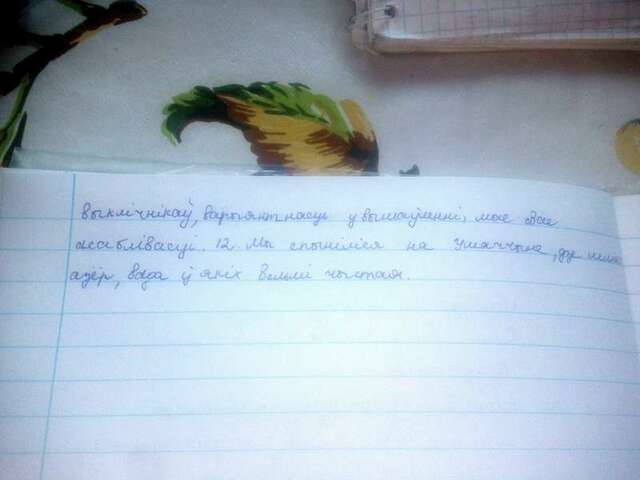 выклічнікаў, варыянтнасць у вымаўленні, мае свае
асаблівасці. 12. Мы спыніліся на Ушаччыне, дзе шмат
азёр, вада ў якіх вельмі чыстая.